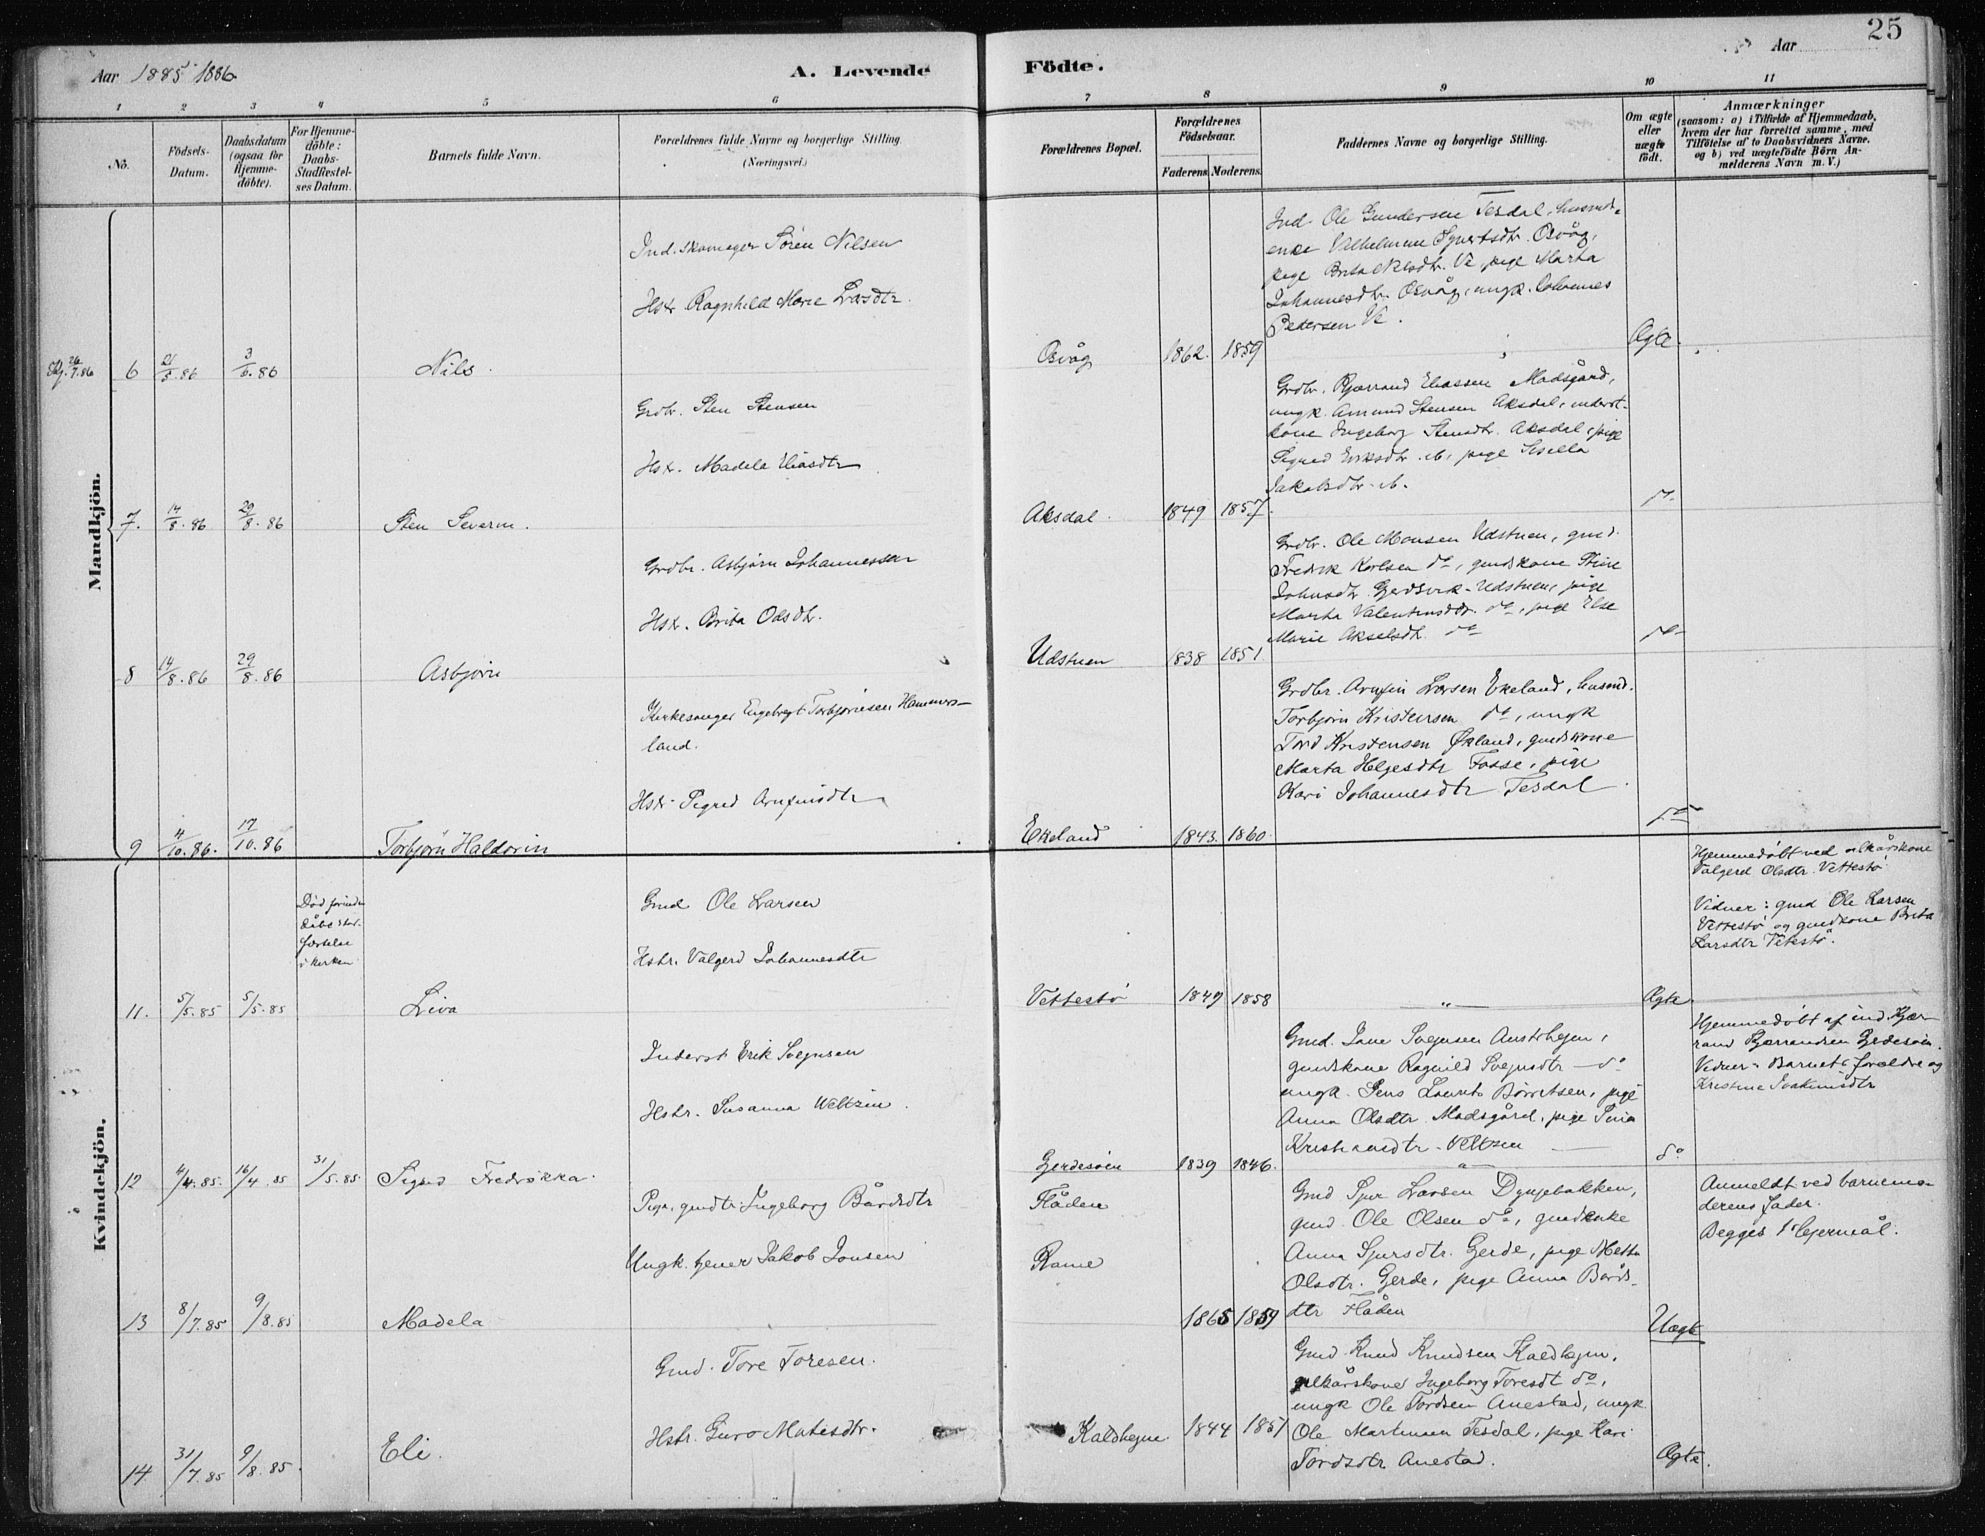 25
Aar 1885 1886
A. Levende
Födte.
Aar
1 2 3 4 5 6 7 8 9 10 11
Nô.
Födsels-
Datum.
Daabsdatum
(ogsaa för
Hjemme-
döbte).
For Hjemme-
döbte:
Daabs-
Stadfæstel-
ses Datum.
Barnets fulde Navn.
Forældrenes fulde Navne og borgerlige Stilling
(Næringsvei.)
Forældrenes Bopæl.
Forældrenes
Födselsaar.
Faderens. Moderens.
Faddernes Navne og borgerlige Stilling.
Om ægte
eller
uægte
födt.
Anmærkninger
(saasom: a) i Tilfælde af Hjemmedaab,
hvem der har forrettet samme, med
Tilföielse af to Daabsvidners Navne.
og b) ved uægtefödte Börn An-
melderens Navn m. V.)
Mandkjön.
6
21/5.86
3/6.86
Nils.
Ind. skomager Sören Nilsen
Hstr Ragnhild Marie Larsdtr.
Osvåg
1862. 1859
Ind. Ole Gundersen Tesdal, husmds
enke Vilhelmine Osvåg,
pige Brita Nilsdtr. Ve, pige Marta
Johannesdtr. Osvåg, ungk. Johannes
Pedersen Ve.
Ægte
7.
14/8.86
29/8.86
Sten Severin.
Grdbr. Sten Stensen
Hstr. Madela Eliasdtr
Aksdal.
1849 1857.
Grdbr. Bjærrand Eliassen Madsgård,
ungk. Amund Stensen Aksdal, inderst-
kone Ingeborg Stensdtr. Aksdal, pige
Sigred Eriksdtr. ib, pige Sisella
Jakobsdtr. ib.
do
8
14/8.86
29/8.86
Asbjørn
Grdbr. Asbjørn Johannessen
Hstr. Brita Olsdtr.
Udstuen
1838 1851.
Grdbr. Ole Monsen Udstuen, gmd.
Fredrik Karlsen do, gmdskone Stine
Johnsdtr. Gjerdsvik-Udstuen, pige
Marta Valentinsdtr. do, pige Else
Marie Akselsdtr. do
do
9
4/10.86.
17/10.86
Torbjørn Haldorin
Kirkesanger Engebregt Torbjørnsen Hammers-
land.
Hstr Sigred Arnfinsdtr
Ekeland
1843. 1860.
Grdbr. Arnfin Larsen Ekeland, husmd.
Torbjørn Kristensen do, ungk
Tord Kristensen Økland, gmdskone
Marta Helgesdtr Fosse, pige
Kari Johannesdtr Tesdal.
do
Kvindekjön.
11.
5/5.85
5/5.85
Død forinden
dåbs stad-
fæstelse
i kirken
Liva
Gmd Ole Larsen
Hstr. Valgerd Johannesdtr
Vettestø
1849 1858
Ægte.
Hjemmedøbt ved vilkårskone
Valgerd Olsdtr. Vettestø
Vidner: gmd Ole Larsen
Vettestø og gmdkone Brita
Larsdtr Vetestø.
12
4/4.85.
16/4.85
31/5.85
Sigred Fredrikka.
Inderst Erik Svejnsen
Hstr. Susanna Weltzin.
Gerdesøen
1839 1846.
Gmd. Lave Svejnsen Austrhejm,
gmdskone Ragnild Svejnsdtr do
ungk. Jens Laurits Børretsen, pige
Anna Olsdtr. Madsgård, pige Sina
Kristiansdtr Veltzen
do
Hjemmedøbt af ind. Kjær-
rand Bjærrandsen Gjerdesøen.
Vidner: Barnets forældre og
Kristine Joakimsdtr
13
8/7.85
9/8.85
Madela
Pige, gmdtr Ingeborg Bårdsdtr
Ungk. tjener Jakob Jonsen
Flåden
Rame
1865 1859
Gmd Sjur Larsen Dyngebakken,
gmd. Ole Olsen do, gmdenke
Anna Sjursdtr. Gerde, pige Metta
Olsdtr. Gerde, pige Anna Bårds-
dtr Flåden
Uægte
Anmeldt ved barnemo-
derens fader.
Begges 1' lejermål.
14
31/7.85
9/8.85.
Eli.
Gmd. Tore Toresen.
Hstr. Guro Matisdtr.
Kaldhejm
1844 1851
Gmd Knud Knudsen Kaldhejm,
vilkårskone Ingeborg Toresdt do,
ungk Ole Tordsen Anestad, ungk
Ole Martinsen Tesdal, pige Kari
Tordsdtr Anestad.
Ægte.